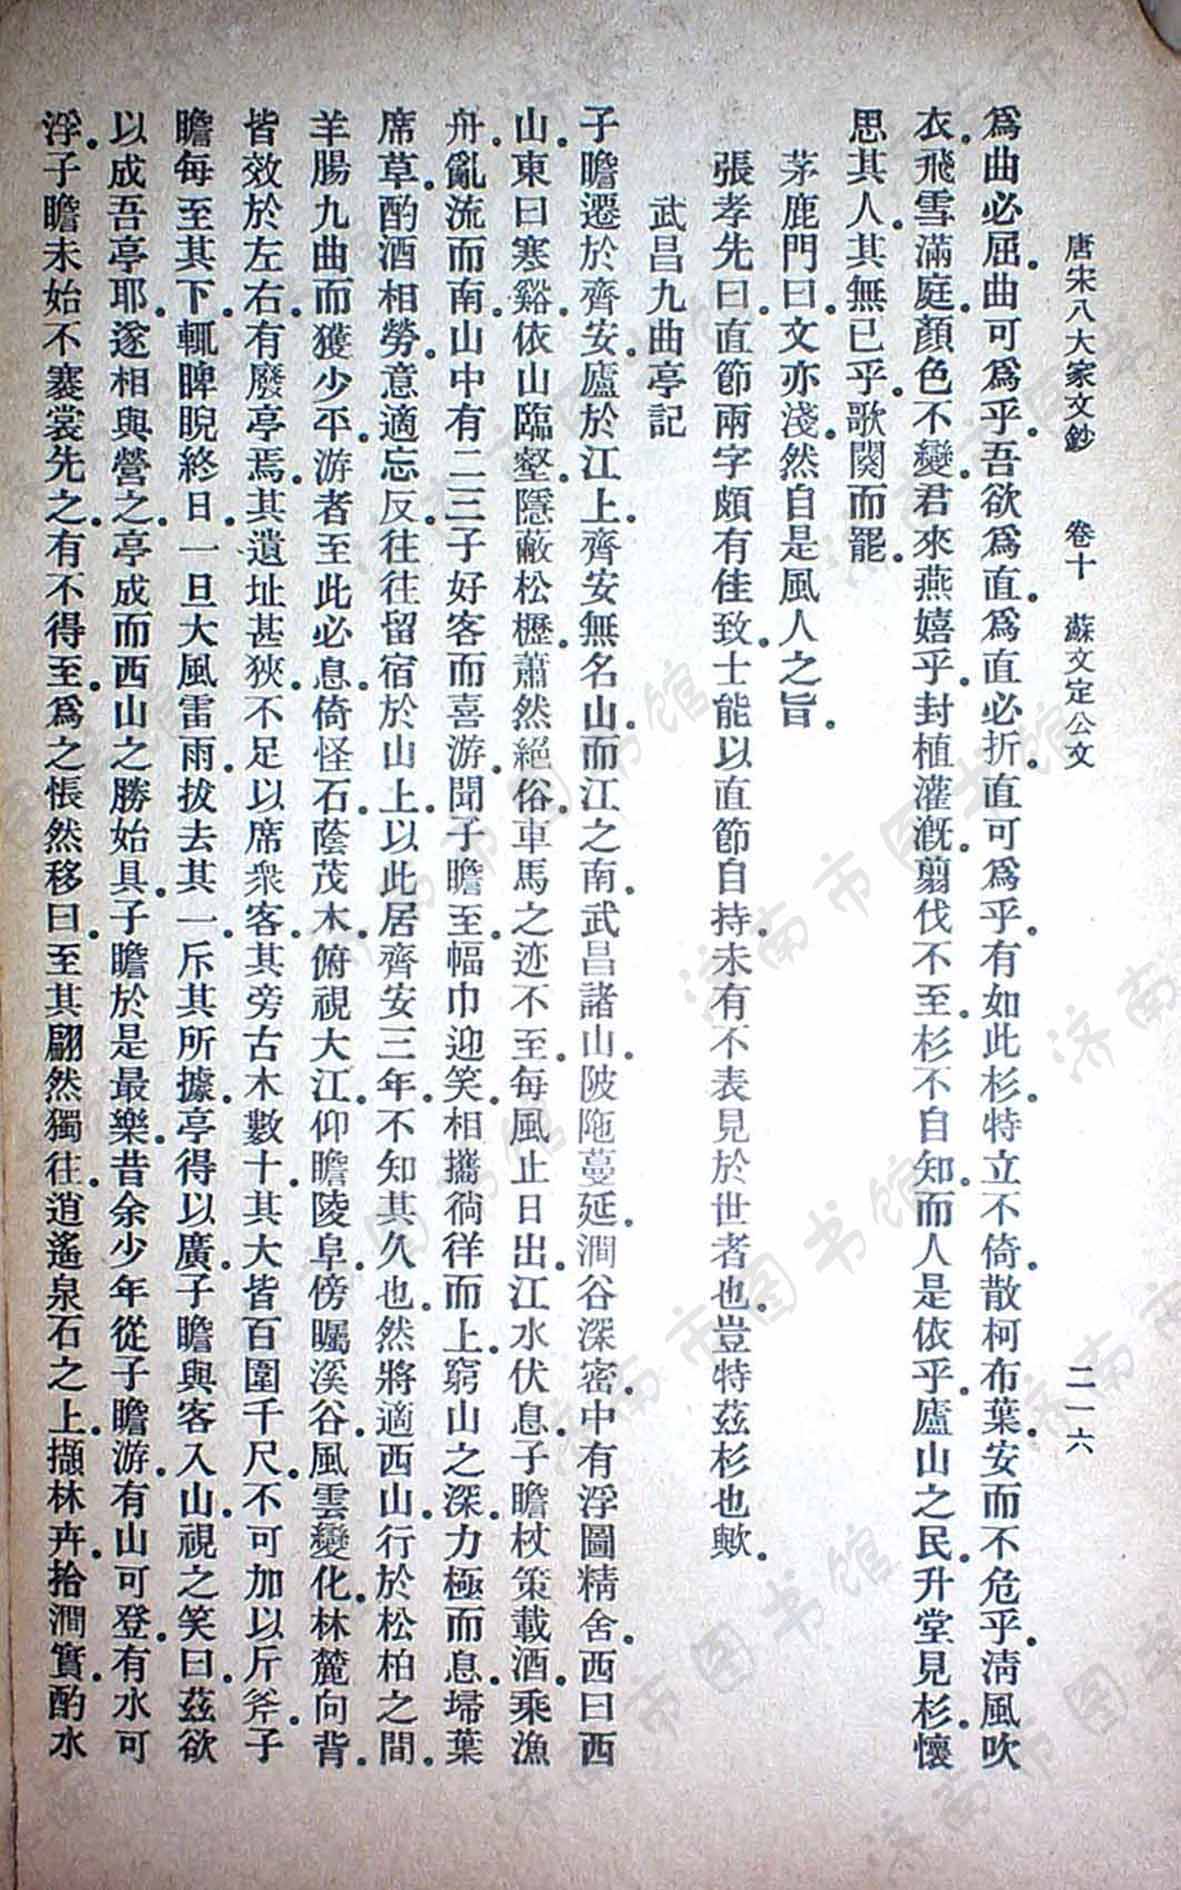 唐宋八大家文鈔　卷十　蘇文定公文　二一六
爲曲必屈。曲可爲乎。吾欲爲直。爲直必折。直可爲乎。有如此杉。特立不倚。散柯布葉。安而不危乎。淸風吹
衣。飛雪滿庭。顏色不變。君來燕嬉乎。封植灌漑。翦伐不至。杉不自知。而人是依乎。廬山之民。升堂見杉。懷
思其人。其無已乎。歌闋而罷。
茅鹿門曰。文亦淺。然自是風人之旨。
張孝先曰。直節兩字頗有佳致。士能以直節自持。未有不表見於世者也。豈特茲杉也歟。
武昌九曲亭記
子瞻遷於齊安。廬於江上。齊安無名山。而江之南。武昌諸山。陂陁蔓延。澗谷深密。中有浮圖精舍。西曰西
山。東曰寒谿。依山臨壑。隱蔽松櫪。蕭然絕俗。車馬之迹不至。每風止日出。江水伏息。子瞻杖策載酒。乘漁
舟。亂流而南。山中有二三子。好客而喜游。聞子瞻至。幅巾迎笑。相攜徜徉而上。窮山之深。力極而息。埽葉
席草。酌酒相勞。意適忘反。往往留宿於山上。以此居齊安三年。不知其久也。然將適西山。行於松柏之間。
羊腸九曲而獲少平。游者至此必息。倚怪石。蔭茂木。俯視大江。仰瞻陵阜。傍矚溪谷。風雲變化。林麓向背。
皆效於左右。有廢亭焉。其遺址甚狹。不足以席衆客。其旁古木數十。其大皆百圍千尺。不可加以斤斧。子
瞻每至其下。輒睥睨終日。一旦大風雷雨。拔去其一。斥其所據。亭得以廣。子瞻與客入山。視之笑曰。茲欲
以成吾亭耶。遂相與營之。亭成而西山之勝始具。子瞻於是最樂。昔余少年從子瞻游。有山可登。有水可
浮。子瞻未始不褰裳先之。有不得至。爲之悵然移日。至其翩然獨往。逍遙泉石之上。擷林卉。拾澗實。酌水
济南市图书馆